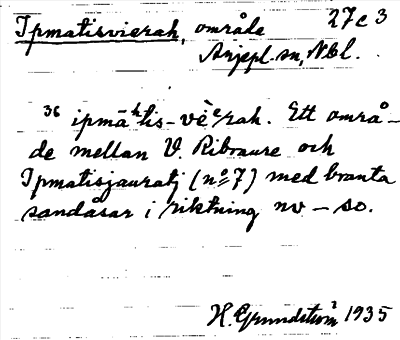 Ipmatisvierah, område 27c3
Arjepl. sn, Nbl.
36 ipmāʰtis-vè̀ᵉrah. Ett områ-
de mellan V. Ribraure och
Ipmatisjauratj (nº 7) med branta
sandåsar i riktning nv – so.
H. Grundström 1935